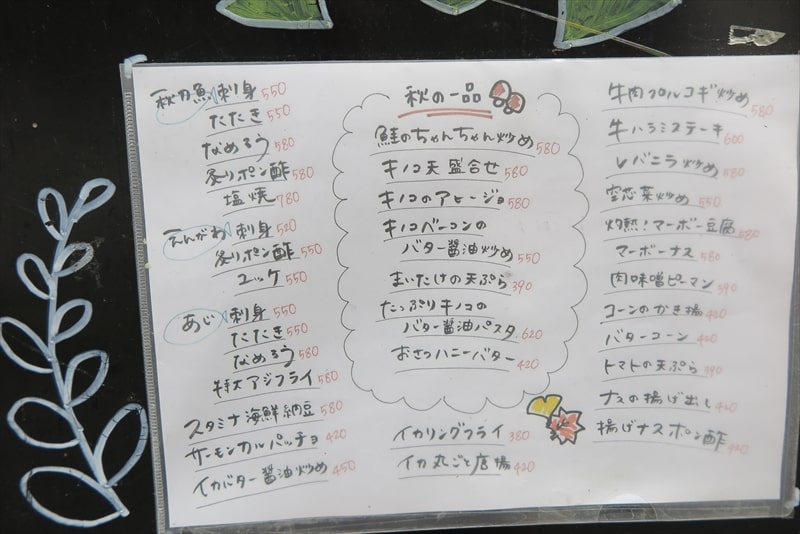 秋刀魚 刺身 550
たたき 550
なめろう 580
炙りポン酢 580
塩焼 780
えんがわ 刺身 520
炙りポン酢 550
ユッケ 550
あじ 刺身 550
たたき 550
なめろう 580
特大アジフライ 580
スタミナ海鮮納豆 580
サーモンカルパッチョ 420
イカバター醤油炒め 450
秋の一品
鮭のちゃんちゃん炒め 580
キノコ天盛合せ 580
キノコのアヒージョ 580
キノコベーコンの
バター醤油炒め 550
まいたけの天ぷら 390
たっぷりキノコの
バター醤油パスタ 620
おさつハニーバター 420
イカリングフライ 380
イカ丸ごと唐揚 420
牛肉プルコギ炒め 580
牛ハラミステーキ 600
レバニラ炒め 580
空芯菜炒め 550
灼熱!マーボー豆腐 580
マーボーナス 580
肉味噌ピーマン 390
コーンのかき揚 420
バターコーン 420
トマトの天ぷら 390
ナスの揚げ出し 420
揚げナスポン酢 420